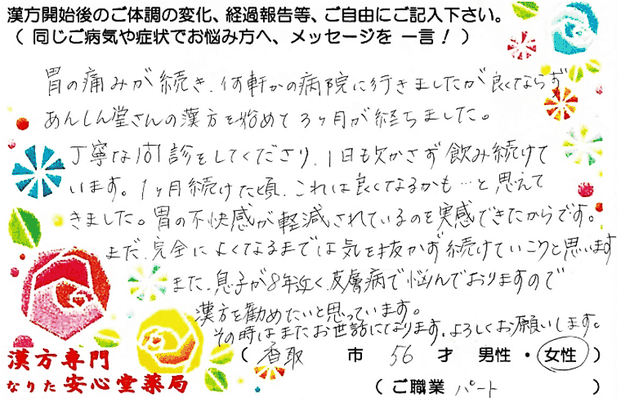 漢方開始後のご体調の変化、経過報告等、ご自由にご記入下さい。
（ 同じご病気や症状でお悩み方へ、メッセージを 一言！ ）
胃の痛みが続き、何軒かの病院に行きましたが良くならず
あんしん堂さんの漢方を始めて3ヶ月が経ちました。
丁寧な問診をしてくださり、1日も欠かさず飲み続けて
います。1ヶ月続けた頃、これは良くなるかも…と思えて
きました。胃の不快感が軽減されているのを実感できたからです。
まだ、完全によくなるまでは気を抜かず続けていこうと思います
また、息子が8年近く皮膚病で悩んでおりますので
漢方を勧めたいと思っています。
その時はまたお世話になります。よろしくお願いします。
（ 香取 市 56 才 男性・女性 ）
漢方専門
なりた 安心堂薬局
（ ご職業 パート ）